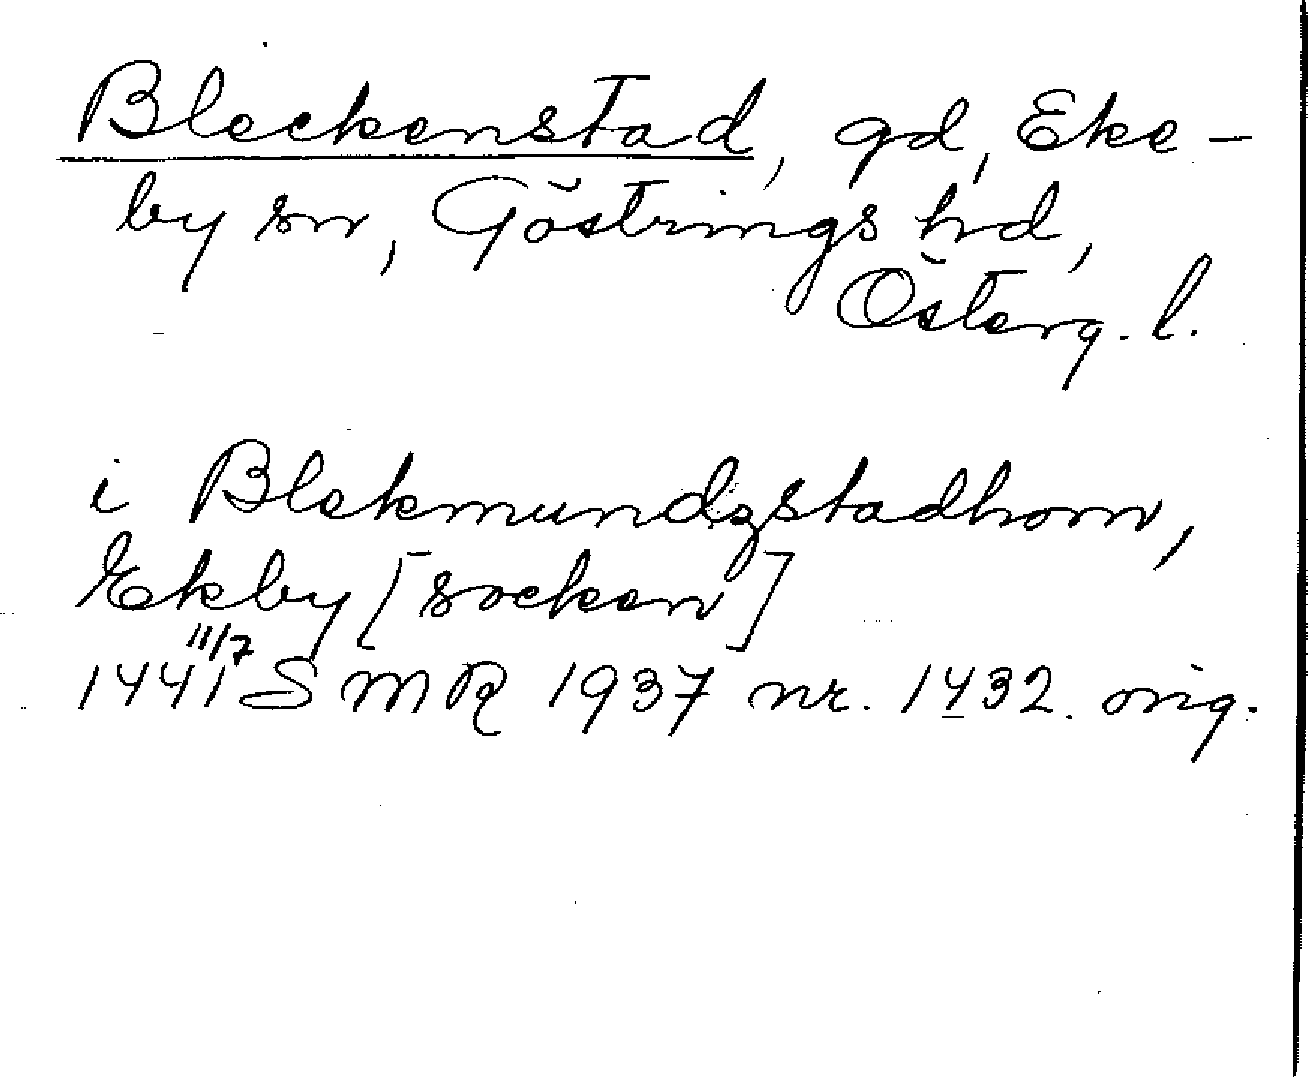 Bleckenstad, gd, Eke-
by sn, Göstrings hd,
Österg. l.
i Blekmundzstadhom,
Ekby [socken]
1441 11/7 SMR 1937 nr. 1432. orig.